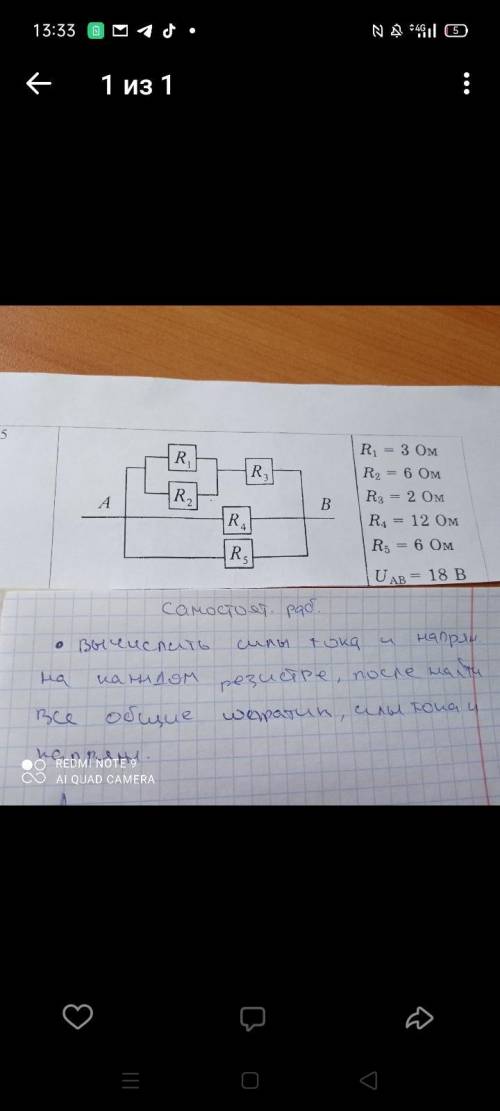 13:33
4G
5
1 из 1
5
R₁
R₃
A
R₂
B
R₄
R₅
R₁ = 3 Ом
R₂ = 6 Ом
R₃ = 2 Ом
R₄ = 12 Ом
R₅ = 6 Ом
U_AB = 18 В
Самостоят. раб.
• Вычислить силы тока и напряж
на каждом резистре, после найти
все общие, силы тока и
напряж.
REDMI NOTE 9
AI QUAD CAMERA